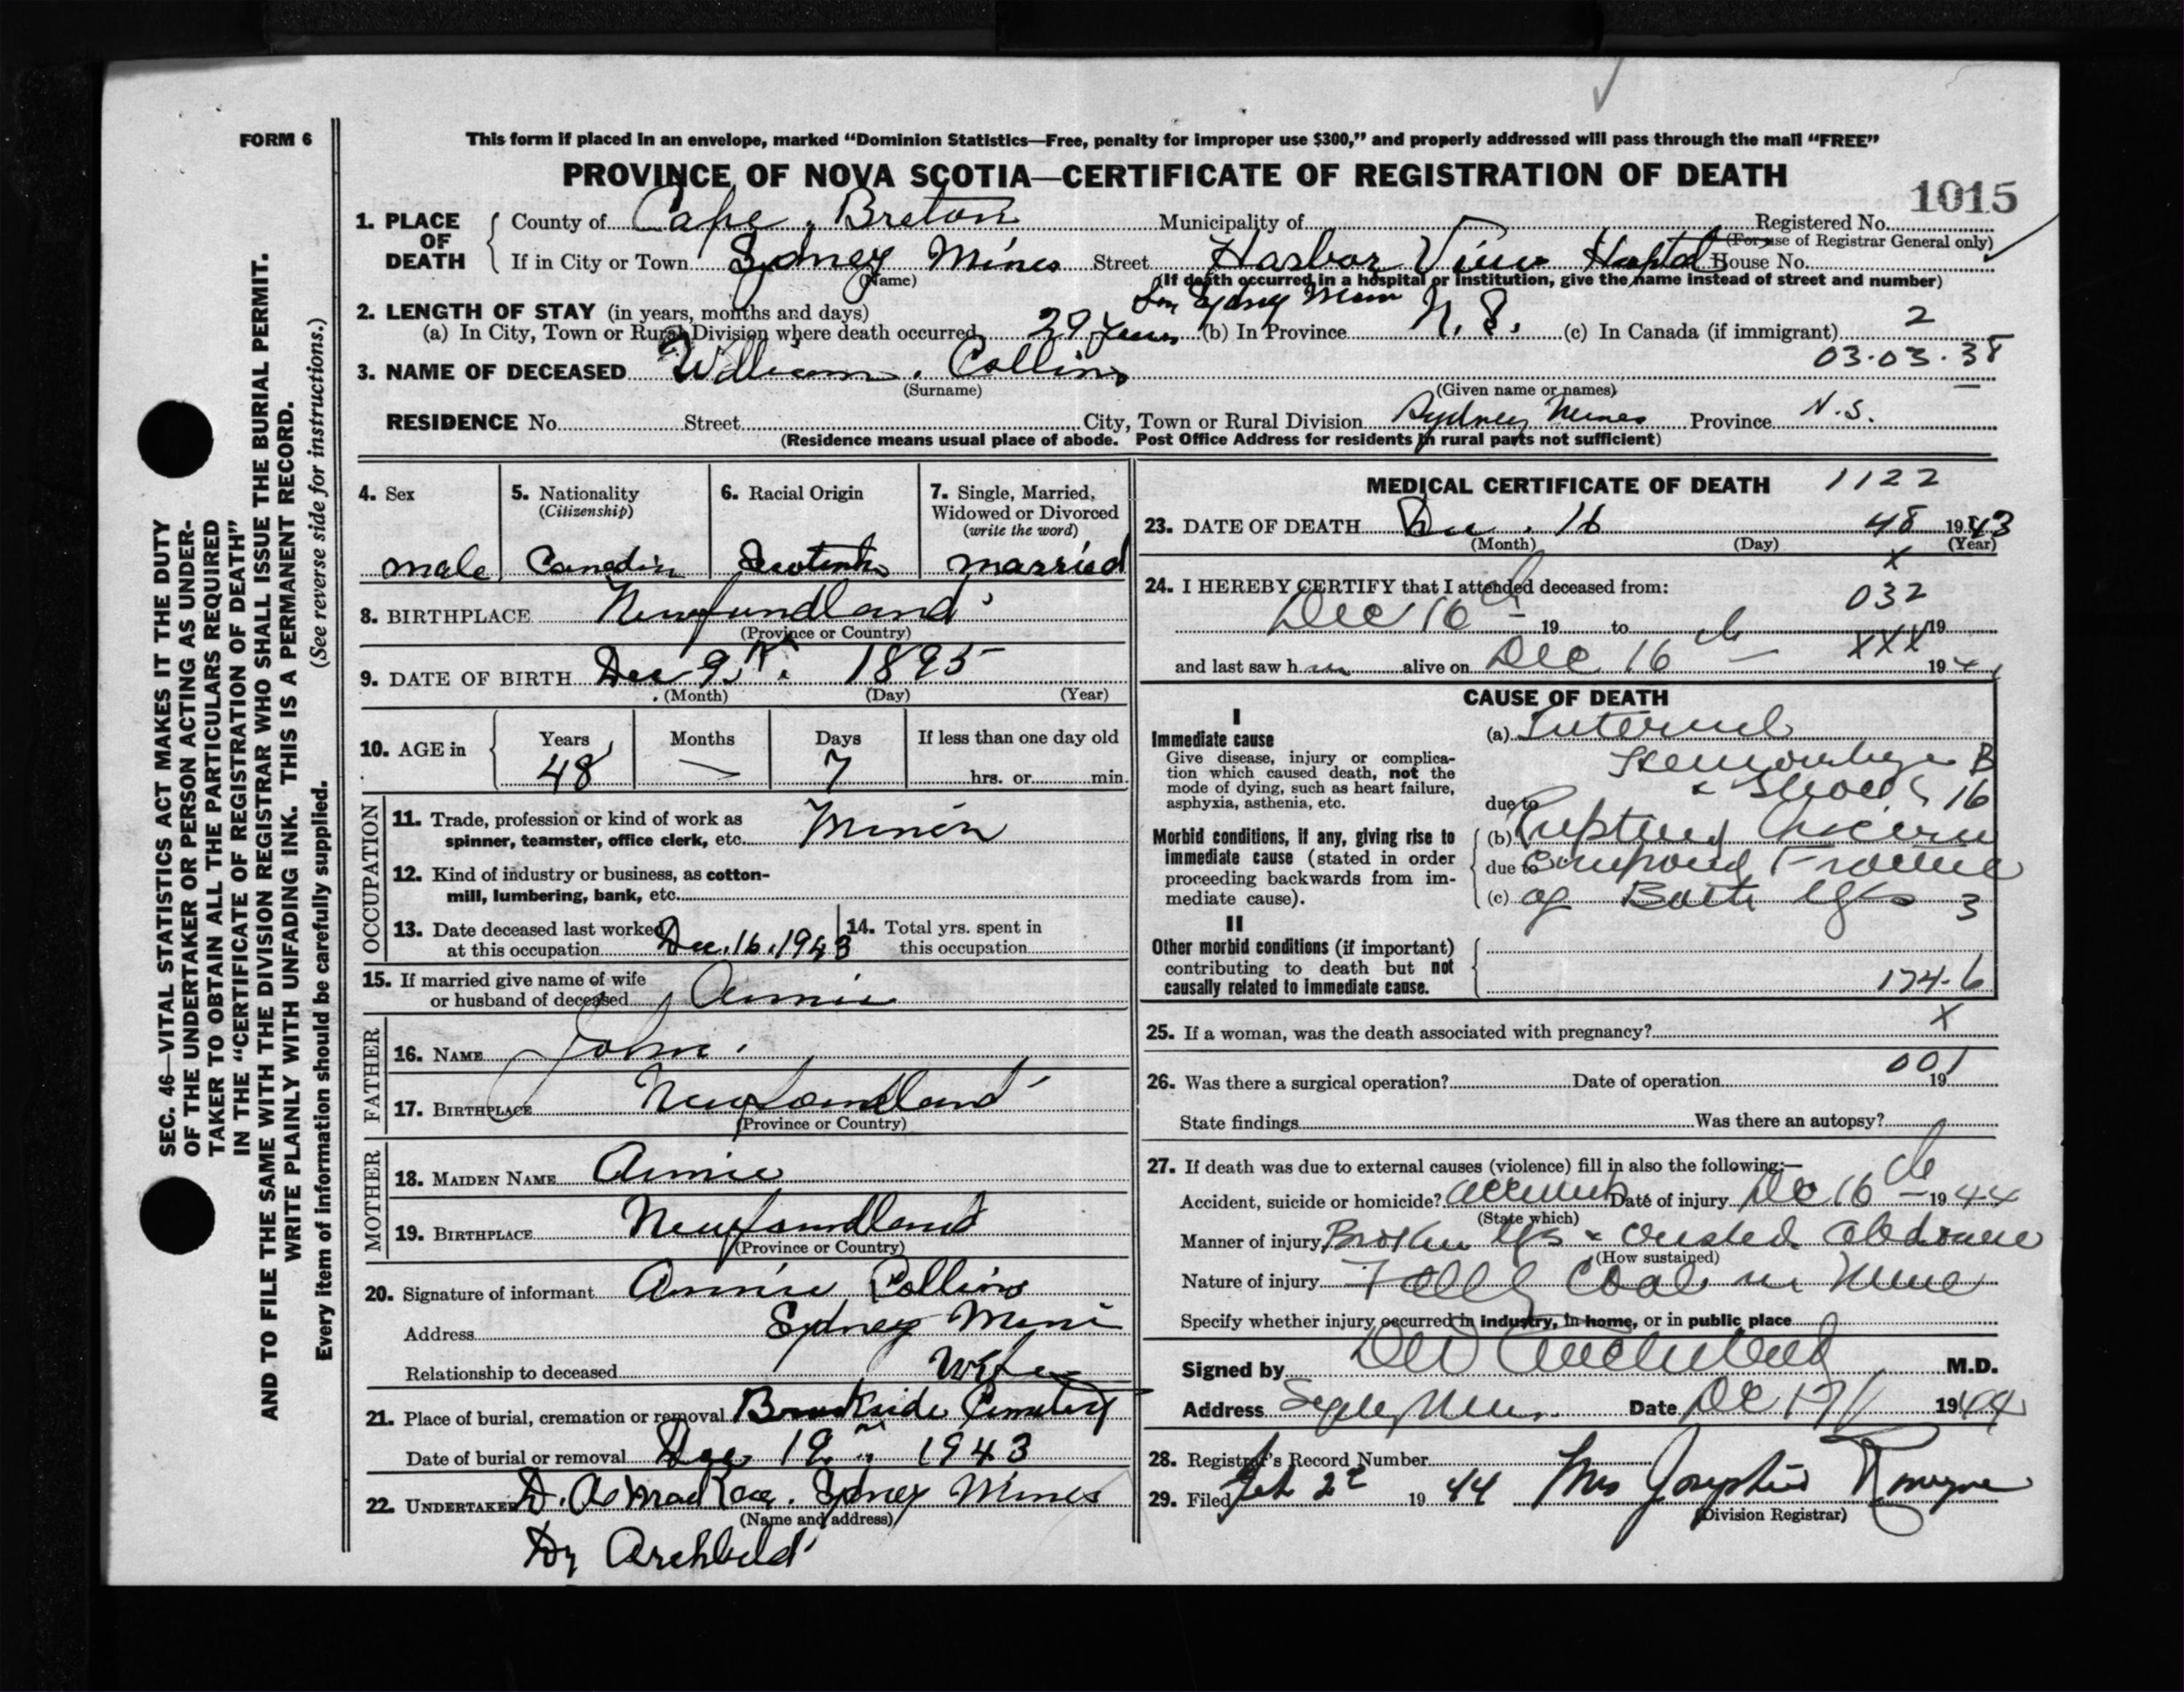 FORM 6
This form if placed in an envelope, marked “Dominion Statistics—Free, penalty for improper use $300,” and properly addressed will pass through the mail “FREE”
PROVINCE OF NOVA SCOTIA—CERTIFICATE OF REGISTRATION OF DEATH
1015
1. PLACE OF DEATH
County of Cape Breton Municipality of Registered No.
(For use of Registrar General only)
If in City or Town Sydney Mines Street Harbor View Hosptal House No.
(Name) (If death occurred in a hospital or institution, give the name instead of street and number)
2. LENGTH OF STAY (in years, months and days)
Sydney
(a) In City, Town or Rural Division where death occurred 29 years (b) In Province N.S. (c) In Canada (if immigrant) 2
03.03.38
3. NAME OF DECEASED William Collins
(Surname) (Given name or names)
RESIDENCE No. Street City, Town or Rural Division Sydney Mines Province N.S.
(Residence means usual place of abode. Post Office Address for residents in rural parts not sufficient)
4. Sex
male
5. Nationality
(Citizenship)
Canadin
6. Racial Origin
7. Single, Married, Widowed or Divorced
(write the word)
married
8. BIRTHPLACE Newfundland
(Province or Country)
9. DATE OF BIRTH Dec 9th 1895
(Month) (Day) (Year)
10. AGE in
Years Months Days If less than one day old
48 — 7 hrs. or min.
OCCUPATION
11. Trade, profession or kind of work as
spinner, teamster, office clerk, etc. Miner
12. Kind of industry or business, as cotton-
mill, lumbering, bank, etc.
13. Date deceased last worked
at this occupation Dec. 16. 1943
14. Total yrs. spent in
this occupation
15. If married give name of wife
or husband of deceased Annie
FATHER
16. NAME John
17. BIRTHPLACE Newfoundland
(Province or Country)
MOTHER
18. MAIDEN NAME Annie
19. BIRTHPLACE Newfoundland
(Province or Country)
20. Signature of informant Annie Collins
Address Sydney Mines
Relationship to deceased Wife
21. Place of burial, cremation or removal Brookside Cemetery
Date of burial or removal Dec 19 1943
22. UNDERTAKER D. A. MacKay. Sydney Mines
(Name and address)
Dr Archbald
MEDICAL CERTIFICATE OF DEATH 1122
23. DATE OF DEATH Dec. 16 48 1943
(Month) (Day) (Year)
X
24. I HEREBY CERTIFY that I attended deceased from:
032
Dec 16th 19 to 19
XXX
and last saw h im alive on Dec 16th 19 44
CAUSE OF DEATH
I
Immediate cause
Give disease, injury or complica-
tion which caused death, not the
mode of dying, such as heart failure,
asphyxia, asthenia, etc.
(a) Internal
Hemorrhage B
& Shock 16
due to
Morbid conditions, if any, giving rise to
immediate cause (stated in order
proceeding backwards from im-
mediate cause).
(b) Ruptured
due to Compound Fracture
(c) of Both legs 3
II
Other morbid conditions (if important)
contributing to death but not
causally related to immediate cause.
174-6
25. If a woman, was the death associated with pregnancy? X
001
26. Was there a surgical operation? Date of operation 19
State findings Was there an autopsy?
27. If death was due to external causes (violence) fill in also the following:—
Accident, suicide or homicide? Date of injury Dec 16th 1944
(State which)
Manner of injury Broken legs & crushed abdomen
(How sustained)
Nature of injury Coal in Mine
Specify whether injury occurred in industry, in home, or in public place
Signed by M.D.
Address Date Dec 17 1944
28. Registrar's Record Number
29. Filed Feb 2 19 44 Mrs Josephine
(Division Registrar)
SEC. 46—VITAL STATISTICS ACT MAKES IT THE DUTY
OF THE UNDERTAKER OR PERSON ACTING AS UNDER-
TAKER TO OBTAIN ALL THE PARTICULARS REQUIRED
IN THE “CERTIFICATE OF REGISTRATION OF DEATH”
AND TO FILE THE SAME WITH THE DIVISION REGISTRAR WHO SHALL ISSUE THE BURIAL PERMIT.
WRITE PLAINLY WITH UNFADING INK. THIS IS A PERMANENT RECORD.
Every item of information should be carefully supplied. (See reverse side for instructions.)